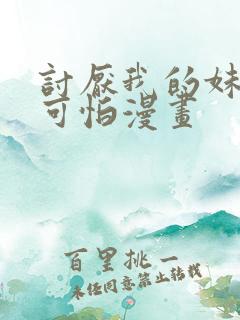 討厭我的妹
可怕漫畫
百里挑一
未经同意禁止转载